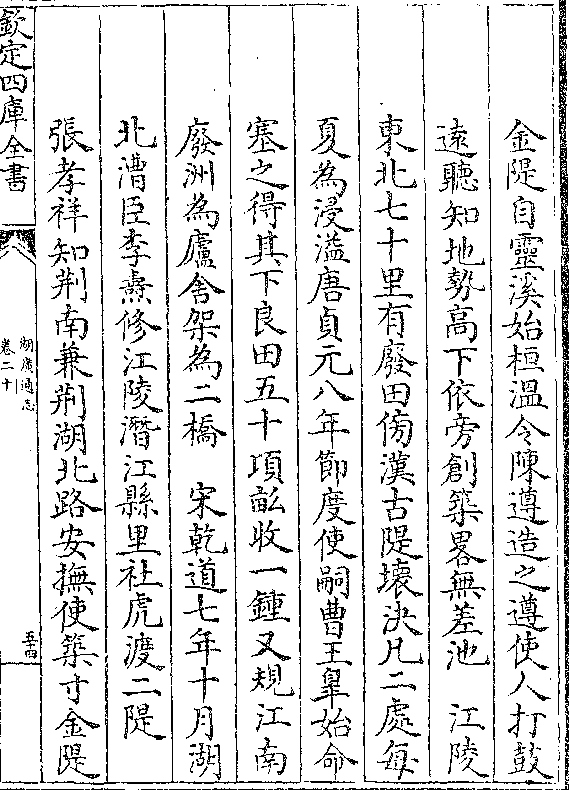 金隄自靈溪始桓溫令陳遵造之遵使人打鼓
遠聽知地勢高下依旁創築畧無差池　江陵
東北七十里有廢田傍漢古隄壊決凡二處每
夏為浸溢唐貞元八年節度使嗣曹王臯始命
塞之得其下良田五十項畝收一鍾又規江南
廢洲為廬舍架為二橋　宋乾道七年十月湖
北漕臣李燾修江陵潛江縣里社虎渡二隄
張孝祥知荆南兼荆湖北路安撫使築寸金隄
欽定四庫全書
湖廣通志
卷二十
五十四